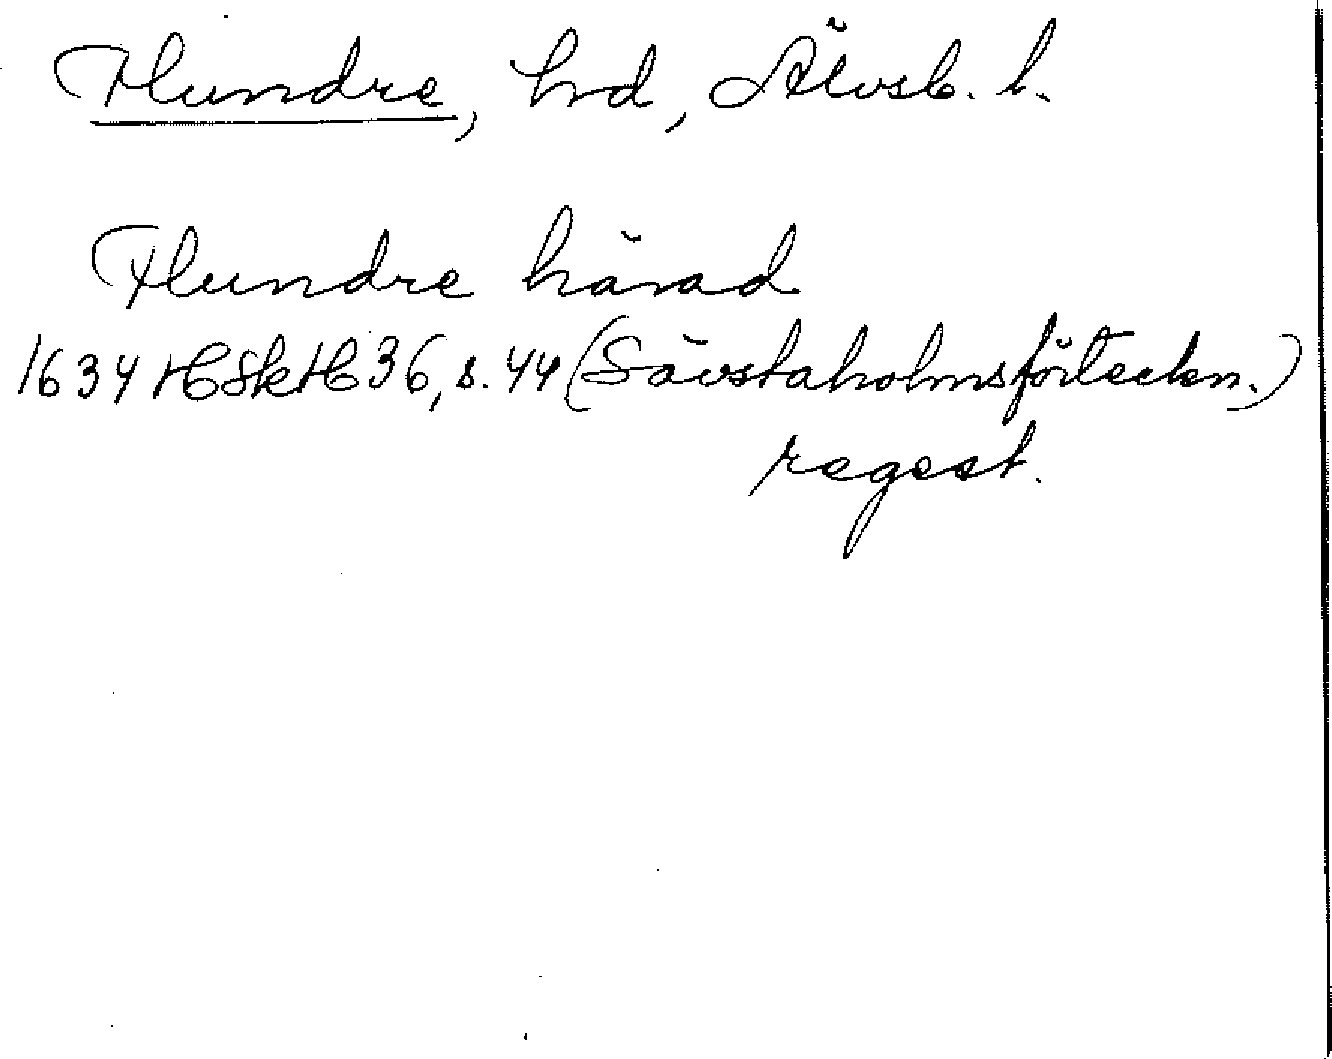 Flundre, hrd, Älvsb. l.
Flundre härad
1634 HSkH 36, s. 44 (Sävstaholmsförteckn.)
regest.